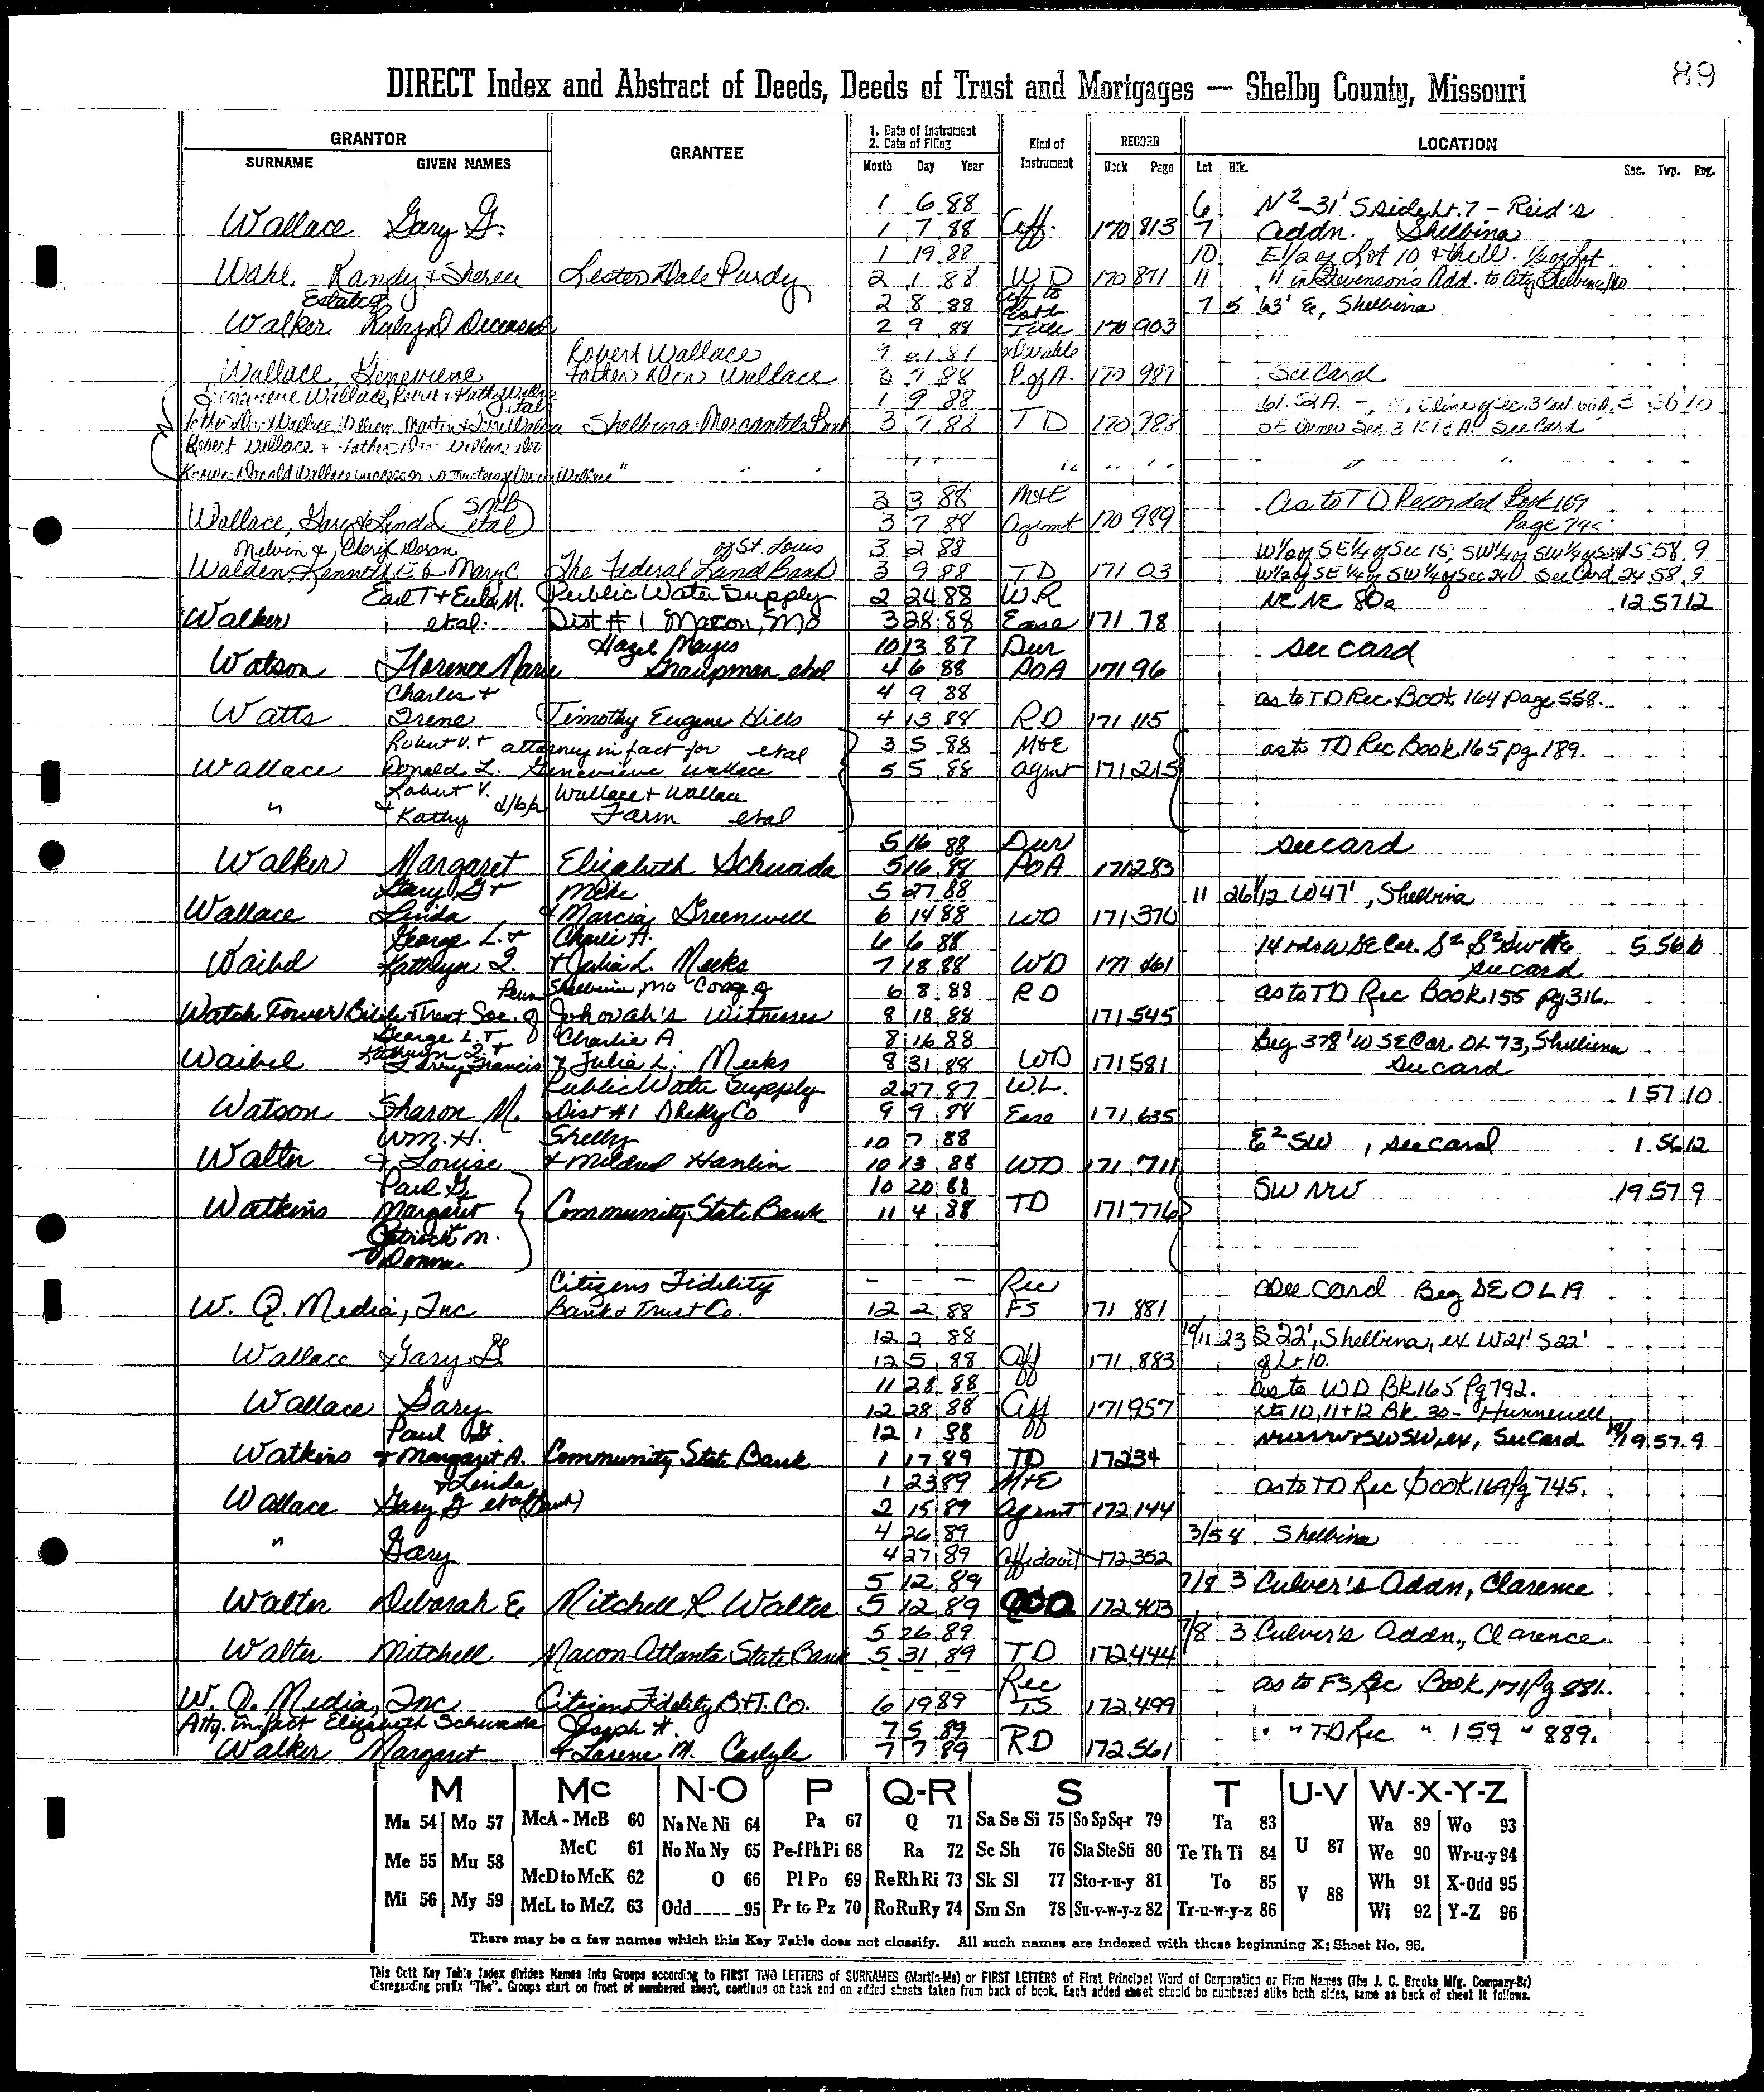 89
DIRECT Index and Abstract of Deeds, Deeds of Trust and Mortgages — Shelby County, Missouri
GRANTOR
SURNAME GIVEN NAMES
GRANTEE
1. Date of Instrument
2. Date of Filing
Month Day Year
Kind of Instrument
RECORD
Book Page
LOCATION
Lot Blk. Sec. Twp. Rng.
1 6 88 6 N2-31' S side Lt. 7 - Reid's
Wallace Gary G. 1 7 88 Aff. 170 813 7 Addn. Shelbina
1 19 88 10 E 1/2 of Lot 10 & the W. 1/2 of Lot
Wahl, Randy & Sheree Lester Dale Purdy 2 1 88 WD 170 871 11 11 in Stevenson's Add. to City Shelbina, Mo
Estate of 2 8 88 Aff to 7 5 63' E, Shelbina
Walker Ruby D Deceased 2 9 88 Title 170 903
Robert Wallace 9 21 87 Durable
Wallace Genevieve Father Don Wallace 3 7 88 P of A. 170 987 See Card
Genevieve Wallace, Robert & Kathy Wallace etal 1 9 88 61.52 A. S line of Sec. 3 3 56 10
Shelbina Mercantile Bank 3 7 88 TD 170 988 SE Corner Sec. 3 See Card
Robert Wallace & Father Don Wallace also
Known Donald Wallace successor Wallace " " "
3 3 88 M&E As to TD Recorded Book 169
Wallace, Gary & Linda (SMB etal) 3 7 88 Agrmt 170 989 Page 745
Melvin & Cheryl Doran of St. Louis 3 2 88 W 1/2 of SE 1/4 of Sec 15, SW 1/4 of SW 1/4 of Sec 15 58 9
Walden, Kenneth E & Mary C. The Federal Land Bank 3 9 88 TD 171 03 W 1/2 of SE 1/4 of SW 1/4 of Sec 24 See Card 24 58 9
Earl T & Eula M. Public Water Supply 2 24 88 W.R NE NE 80a 12 57 12
Walker etal. Dist #1 Macon, Mo 3 28 88 Ease 171 78
Hazel Mayes 10 13 87 Dur see card
Watson Florence Marie Graupman etal 4 6 88 POA 171 96
Charles & 4 9 88 as to TD Rec. Book 164 page 558.
Watts Irene Timothy Eugene Hills 4 13 88 RD 171 115
Robert V. & attorney in fact for etal 3 5 88 M&E as to TD Rec Book 165 pg. 189.
Wallace Donald L. Genevieve Wallace 5 5 88 agmt 171 215
Robert V. Wallace & Wallace
" & Kathy d/b/a Farm etal
5 16 88 Dur see card
Walker Margaret Elizabeth Schwada 5 16 88 POA 171 283
Gary G & Mike 5 27 88 11 26 W47', Shelbina
Wallace Linda & Marcia Greenwell 6 14 88 WD 171 370
George L. & Charlie A. 6 6 88 14 rds W SE Cor. S2 S2 SW 5 56 10
Waibel Kathryn I. & Julia L. Meeks 7 18 88 WD 171 461 see card
Penn Shelbina, Mo Cong. of 6 8 88 RD as to TD Rec Book 155 pg 316.
Watch Tower Bible & Tract Soc. of Jehovah's Witnesses 8 18 88 171 545
George L. & Charlie A 8 16 88 Beg 378' W SE Cor. OL 73, Shelbina
Waibel Kathryn I. & Larry Francis & Julia L. Meeks 8 31 88 WD 171 581 See card
Public Water Supply 2 27 87 W.L. 1 57 10
Watson Sharon M. Dist #1 Shelby Co 9 9 88 Ease 171 635
Wm. H. Shelby 10 7 88 E2 SW, see card 1 56 12
Walter & Louise & Mildred Hanlin 10 13 88 WD 171 711
Paul G. 10 20 88 SW NW 19 57 9
Watkins Margaret Community State Bank 11 4 88 TD 171 776
Patrick M.
& Donna
Citizens Fidelity – – – Rec See card Beg SE OL 19
W. Q. Media, Inc Bank & Trust Co. 12 2 88 FS 171 881
12 2 88 10/11 23 S 22', Shelbina, ex W 21' S 22'
Wallace Gary G 12 5 88 Aff 171 883 of Lt 10.
11 28 88 as to WD Bk 165 Pg 792.
Wallace Gary 12 28 88 Aff 171 957 Lts 10, 11 & 12 Bk. 30 - Hunnewell
Paul G. 12 1 88 NWNW & SWSW, ex, See Card 19 57 9
Watkins & Margaret A. Community State Bank 1 17 89 TD 172 34
& Linda 1 23 89 M&E as to TD Rec Book 169 Pg 745.
Wallace Gary G etal (Bank) 2 15 89 Agrmt 172 144
4 26 89 3/5 8 Shelbina
" Gary 4 27 89 Affidavit 172 352
5 12 89 7/8 3 Culver's Addn, Clarence
Walter Deborah E Mitchell R Walter 5 12 89 QCD 172 403
5 26 89 7/8 3 Culver's Addn., Clarence
Walter Mitchell Macon-Atlanta State Bank 5 31 89 TD 172 444
– – – Rec as to FS Rec Book 171 Pg 881.
W. Q. Media, Inc Citizens Fidelity B & T. Co. 6 19 89 TS 172 499
Atty. in fact Elizabeth Schwada Joseph H. 7 5 89 " " TD Rec " 159 " 889.
Walker Margaret & Lorene M. Carlyle 7 7 89 RD 172 561
M Mc N-O P Q-R S T U-V W-X-Y-Z
Ma 54 Mo 57 McA - McB 60 Na Ne Ni 64 Pa 67 Q 71 Sa Se Si 75 So Sp Sq-r 79 Ta 83 U 87 Wa 89 Wo 93
Me 55 Mu 58 McC 61 No Nu Ny 65 Pe-f Ph Pi 68 Ra 72 Sc Sh 76 Sta Ste Sti 80 Te Th Ti 84 V 88 We 90 Wr-u-y 94
McD to McK 62 O 66 Pl Po 69 Re Rh Ri 73 Sk Sl 77 Sto-r-u-y 81 To 85 Wh 91 X-Odd 95
Mi 56 My 59 McL to McZ 63 Odd-----95 Pr to Pz 70 Ro Ru Ry 74 Sm Sn 78 Su-v-w-y-z 82 Tr-u-w-y-z 86 Wi 92 Y-Z 96
There may be a few names which this Key Table does not classify. All such names are indexed with those beginning X; Sheet No. 95.
This Cott Key Table Index divides Names into Groups according to FIRST TWO LETTERS of SURNAMES (Martin-Ma) or FIRST LETTERS of First Principal Word of Corporation or Firm Names (The J. C. Brooks Mfg. Company-Br)
disregarding prefix "The". Groups start on front of numbered sheet, continue on back and on added sheets taken from back of book. Each added sheet should be numbered alike both sides, same as back of sheet it follows.